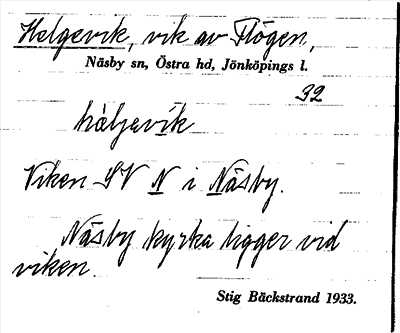 Helgevik, vik av Flögen,
Näsby sn, Östra hd, Jönköpings l.
32
hàljevík
Viken SV N i Näsby.
Näsby kyrka ligger vid
viken.
Stig Bäckstrand 1933.